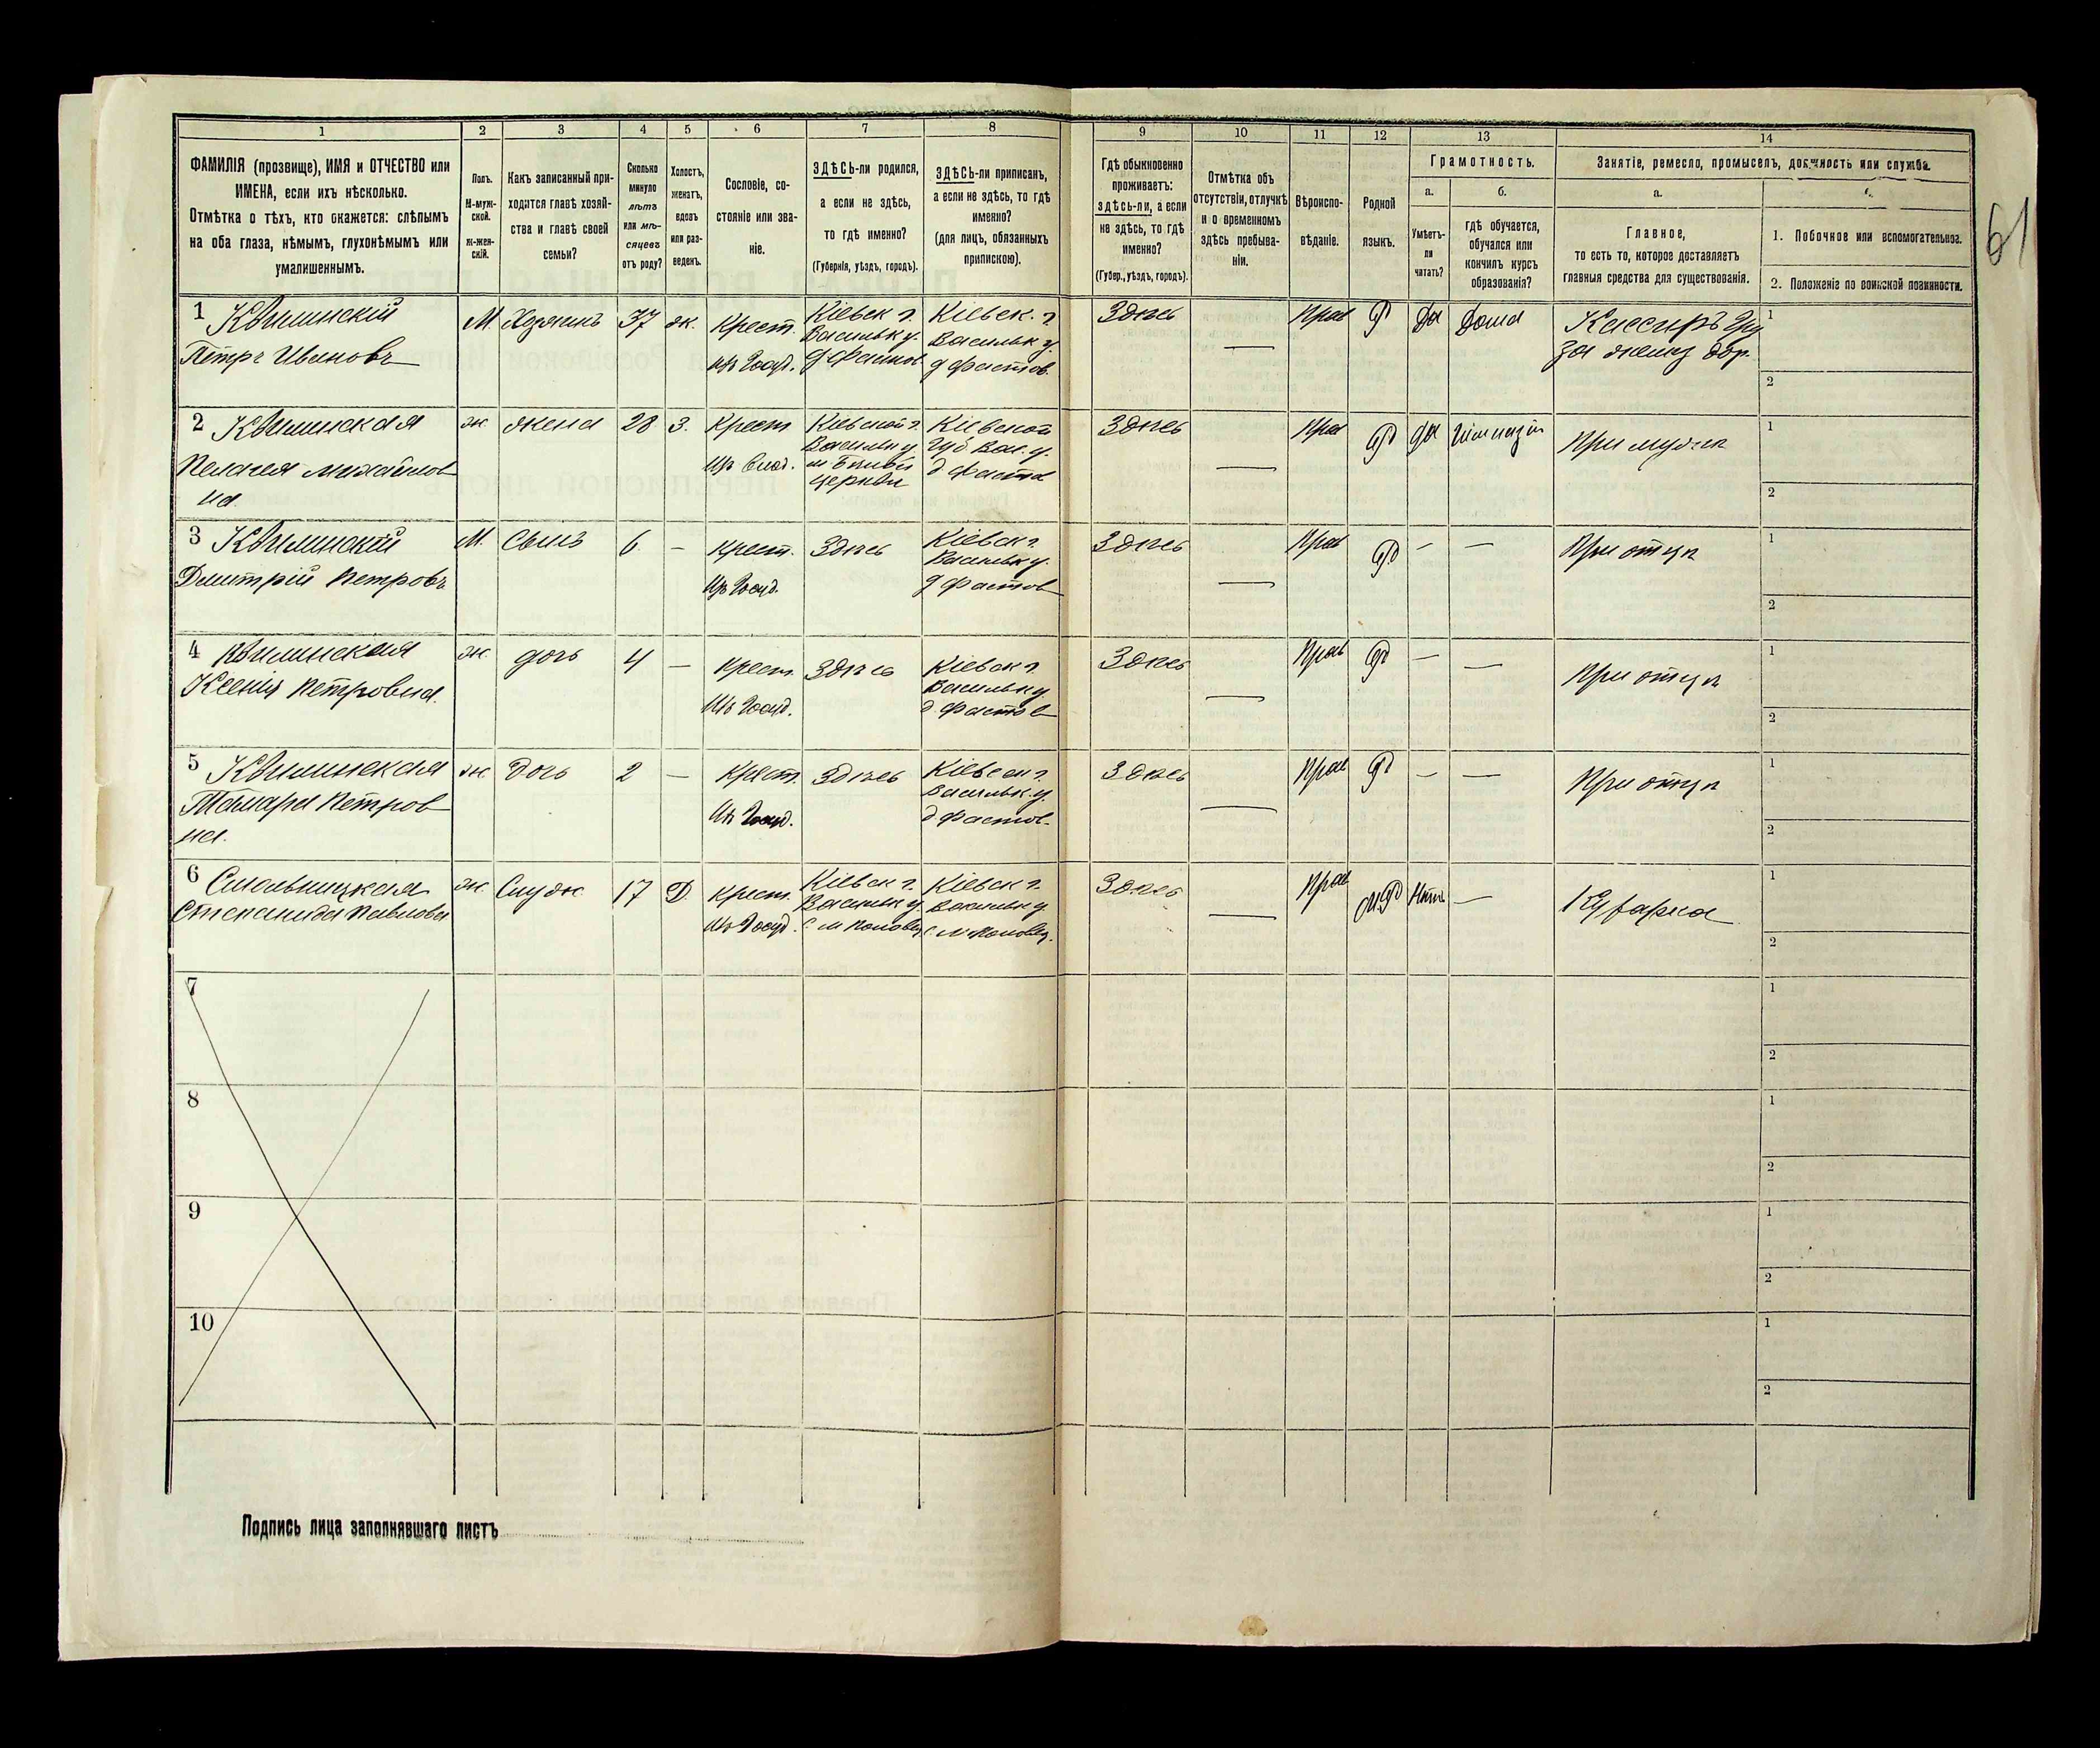 1
2
3
4
5
6
7
8
9
10
11
12
13
14
ФАМИЛІЯ (прозвище), ИМЯ и ОТЧЕСТВО или
ИМЕНА, если ихъ нѣсколько.
Отмѣтка о тѣхъ, кто окажется: слѣпымъ
на оба глаза, нѣмымъ, глухонѣмымъ или
умалишеннымъ.
Полъ.
М-муж-
ской.
Ж-жен-
скій.
Какъ записанный при-
ходится главѣ хозяй-
ства и главѣ своей
семьи?
Сколько
минуло
лѣтъ
или мѣ-
сяцевъ
отъ роду?
Холостъ,
женатъ,
вдовъ
или раз-
веденъ.
Сословіе, со-
стояніе или зва-
ніе.
ЗДѢСЬ-ли родился,
а если не здѣсь,
то гдѣ именно?
(Губернія, уѣздъ, городъ).
ЗДѢСЬ-ли приписанъ,
а если не здѣсь, то гдѣ
именно?
(для лицъ, обязанныхъ
припискою).
Гдѣ обыкновенно
проживаетъ:
здѣсь-ли, а если
не здѣсь, то гдѣ
именно?
(Губер., уѣздъ, городъ).
Отмѣтка объ
отсутствіи, отлучкѣ
и о временномъ
здѣсь пребыва-
ніи.
Вѣроиспо-
вѣданіе.
Родной
языкъ.
Грамотность.
а.
Умѣетъ-
ли
читать?
б.
гдѣ обучается,
обучался или
кончилъ курсъ
образованія?
Занятіе, ремесло, промыселъ, должность или служба.
а.
Главное,
то есть то, которое доставляетъ
главныя средства для существованія.
1. Побочное или вспомогательное.
2. Положеніе по воинской повинности.
61
1
Петръ Ивановъ
М. Хозяинъ 37 ж. Крест.
Кіевск г.
Васильк у.
Кіевск. г
Васильк у.
д Фастов.
Здѣсь
—
Прав
Р
Да
Дома
Кассиръ
1
2
2
Пелагея Михайлов
на
ж. жена 28 З. Крест
Кіевской г.
Васильк у
м Бѣлой
Церкви
Кіевской
Губ Вас. у.
д Фастов
Здѣсь
—
Прав
Р
да
При мужѣ
1
2
3
Дмитрій Петровъ
М. Сынъ 6 — Крест.
Здѣсь
Кіевск г.
Васильк у.
д Фастов
Здѣсь
—
Прав
Р
—
—
При отцѣ
1
2
4
Ксенія Петровна.
ж. дочь 4 — Крест.
Здѣсь
Кіевск г.
Васильк у.
д. Фастов
Здѣсь
—
Прав
Р
—
—
При отцѣ
1
2
5
Тамара Петров
на.
ж. Дочь 2 — Крест.
Здѣсь
Кіевск г.
Васильк. у.
д Фастов.
Здѣсь
—
Прав
Р
—
—
При отцѣ
1
2
6
Степанида Павлова
ж. Служ 17 Д. Крест.
Кіевск г.
Васильк у
Кіевск г.
Васильк у
Здѣсь
—
Прав
М.Р
Нѣтъ
—
Кухарка
1
2
7
1
2
8
1
2
9
1
2
10
1
2
Подпись лица заполнявшаго листъ